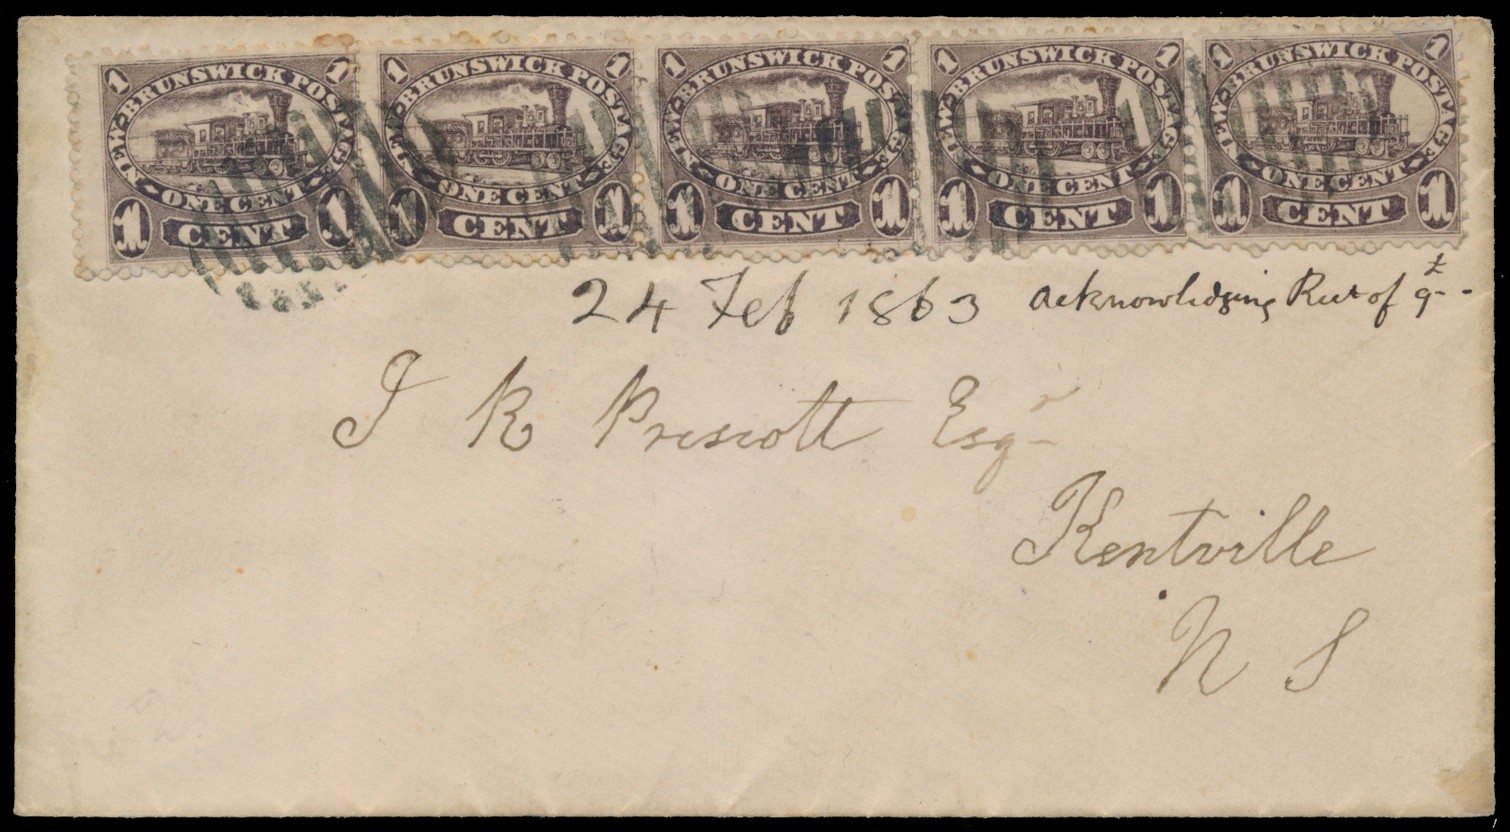 1 NEW-BRUNSWICK POSTAGE 1
ONE CENT
1 CENT 1
1 NEW-BRUNSWICK POSTAGE 1
ONE CENT
1 CENT 1
1 NEW-BRUNSWICK POSTAGE 1
ONE CENT
1 CENT 1
1 NEW-BRUNSWICK POSTAGE 1
ONE CENT
1 CENT 1
1 NEW-BRUNSWICK POSTAGE 1
ONE CENT
1 CENT 1
24 Feb 1863 acknowledging of £9
J R Prescott Esqr
Kentville
N S